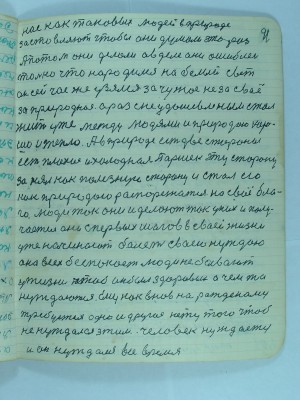 нас как таковых людей в природе
заставляют чтобы они думали это раз
А потом они делали а в деле они ошиблись
только что народился на белый свет
он сейчас же взялся за чужое не за своё
за природное а раз с неодушевлённым стал
жить уже между людями и природою хоро-
шо и тепло. А в природе есть две стороны
есть плохая и холодная Паршек эту сторону
занял как полезную сторону и стал его
как природою распоряжатся на своё бла-
го. люди так они и делают так у них и полу-
чается они с первых шагов в своей жизни
уже начинают болеть своею нуждою
она всех беспокоит люди не бывают
у жизни чтоб он был здоровым о чем то
нуждаются ему как вновь на рожденому
требуется одно и другое нету того чтоб
не нуждался этим. человек нуждается
и он нуждался все время